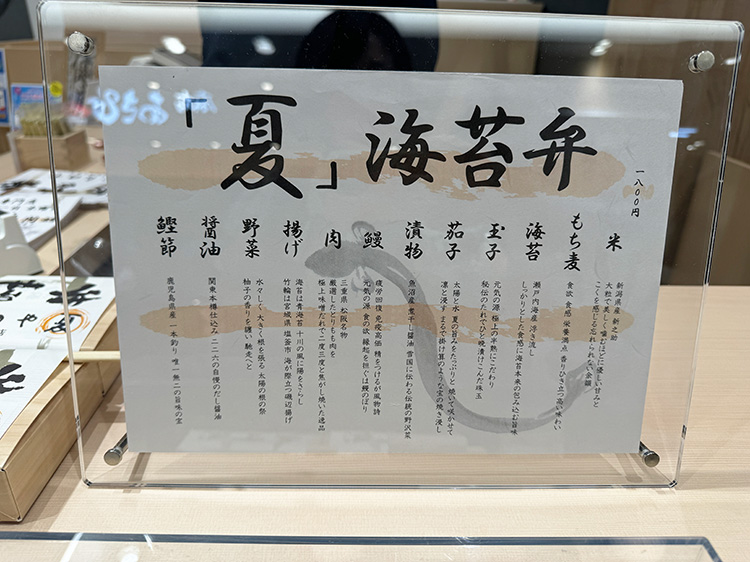 「夏」海苔弁
一八〇〇円
米
新潟県産 新之助
大粒で美しく噛むほどに優しい甘みと
こくを感じる忘れられない余韻
もち麦
食欲 食感 栄養満点 香りひき立つ高い味わい
海苔
瀬戸内海産 浮き流し
しっかりとした食感に海苔本来の包み込む旨味
玉子
元気の源 極上の半熟にこだわり
秘伝のたれでひと晩漬けこんだ珠玉
茄子
太陽と水 夏の旨みをたっぷりと 焼いて咲かせて
凛と浸す まるで掛け算のような宝の焼き浸し
漬物
魚沼産 煮干し醤油 雪国に伝わる伝統の野沢菜
鰻
疲労回復 免疫高揚 精をつけるが風物詩
元気の源 食の欲 縁起を担ぐは鰻のぼり
肉
三重県 松阪名物
厳選したとりもも肉を
極上味噌だれで二度三度と熟がし焼いた逸品
揚げ
海苔は青海苔 十川の風に陽をさらし
竹輪は宮城県 塩釜市 海が際立つ磯辺揚げ
野菜
水々しく 大きく根を張る 太陽の根の祭
柚子の香りを纏い 馳走へと
醤油
関東本樽仕込み 二二六の自慢のだし醤油
鰹節
鹿児島県産 一本釣り 唯一無二の旨味の宝